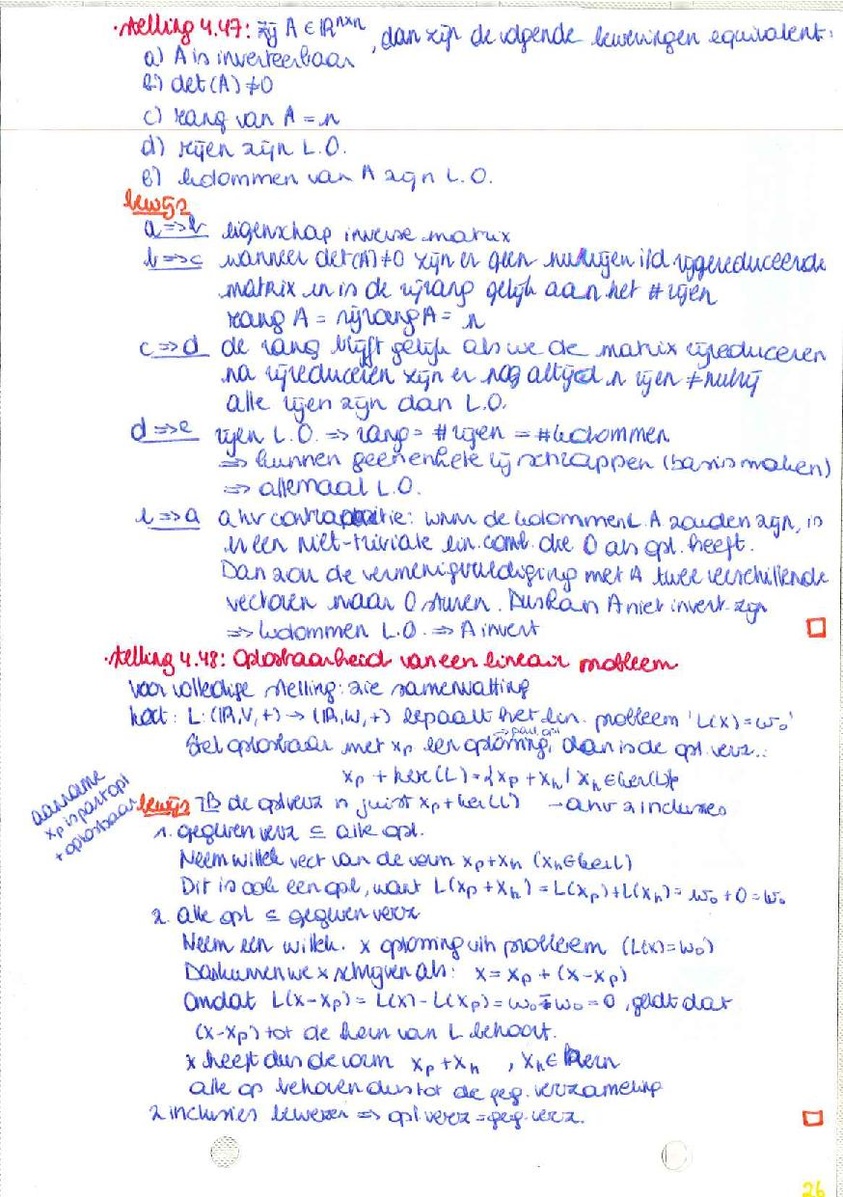 • stelling 4.47: zij A ∈ ℝⁿˣⁿ, dan zijn de volgende beweringen equivalent:
a) A is inverteerbaar
b) det(A) ≠ 0
c) rang van A = n
d) rijen zijn L.O.
e) kolommen van A zijn L.O.
bewijs
a ⇒ b eigenschap inverse matrix
b ⇒ c wanneer det(A) ≠ 0 zijn er geen nulrijen i/d rijgereduceerde
matrix en is de rijrang gelijk aan het # rijen
rang A = rijrang A = n
c ⇒ d de rang blijft gelijk als we de matrix rijreduceren
na rijreduceren zijn er nog altijd n rijen ≠ nulrij
alle rijen zijn dan L.O.
d ⇒ e rijen L.O. ⇒ rang = # rijen = # kolommen
⇒ kunnen geen enkele rij schrappen (basis maken)
⇒ allemaal L.O.
e ⇒ a ahv contrapositie: wnn de kolommen L.A zouden zijn, is
er een niet-triviale lin. comb. die 0 als opl. heeft.
Dan zou de vermenigvuldiging met A twee verschillende
vectoren naar 0 sturen. Dus kan A niet invert. zijn
⇒ kolommen L.O. ⇒ A invert
• stelling 4.48: Oplosbaarheid van een lineair probleem
voor volledige stelling: zie samenvatting
kort: L: (ℝ,V,+) → (ℝ,W,+) bepaalt het lin. probleem 'L(x) = w₀'
Stel oplosbaar met xₚ een oplossing, dan is de opl. verz.:
→ part. opl
xₚ + ker(L) = {xₚ + xₕ | xₕ ∈ ker(L)}
aanname
xₚ is part opl
+ oplosbaar
bewijs TB de oplverz is juist xₚ + ker(L) → ahv 2 inclusies
1. gegeven verz ⊆ alle opl.
Neem willek vect van de vorm xₚ + xₕ (xₕ ∈ ker L)
Dit is ook een opl, want L(xₚ + xₕ) = L(xₚ) + L(xₕ) = w₀ + 0 = w₀
2. alle opl ⊆ gegeven verz
Neem een willek. x oplossing v/h probleem (L(x) = w₀)
Dan kunnen we x schrijven als: x = xₚ + (x - xₚ)
Omdat L(x - xₚ) = L(x) - L(xₚ) = w₀ - w₀ = 0, geldt dat
(x - xₚ) tot de kern van L behoort.
x heeft dus de vorm xₚ + xₕ , xₕ ∈ kern
alle op behoren dus tot de geg. verzameling
2 inclusies bewezen ⇒ opl verz = geg. verz.
26